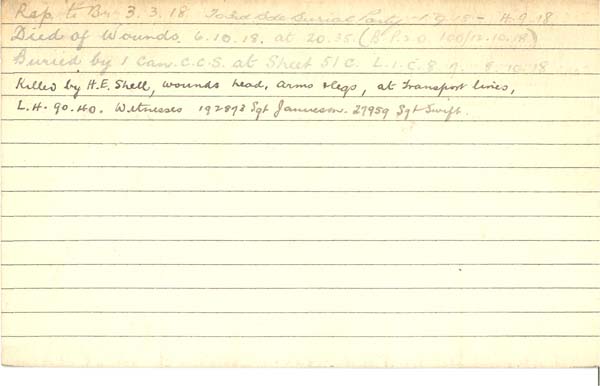 Rep. to Bn 3.3.18. Burial Party - 4.9.18
Died of Wounds. 6.10.18. at 20.35. (B P.2.O. 100/12.10.18)
Buried by 1 Can. C.C.S. at Sheet 51 C. L.1.C.8. 8.10.18
Killed by H.E. Shell, wounds head, arms & legs, at Transport lines,
L.H. 90.40. Witnesses 192893 Sgt Jamieson. 27959 Sgt Swift.